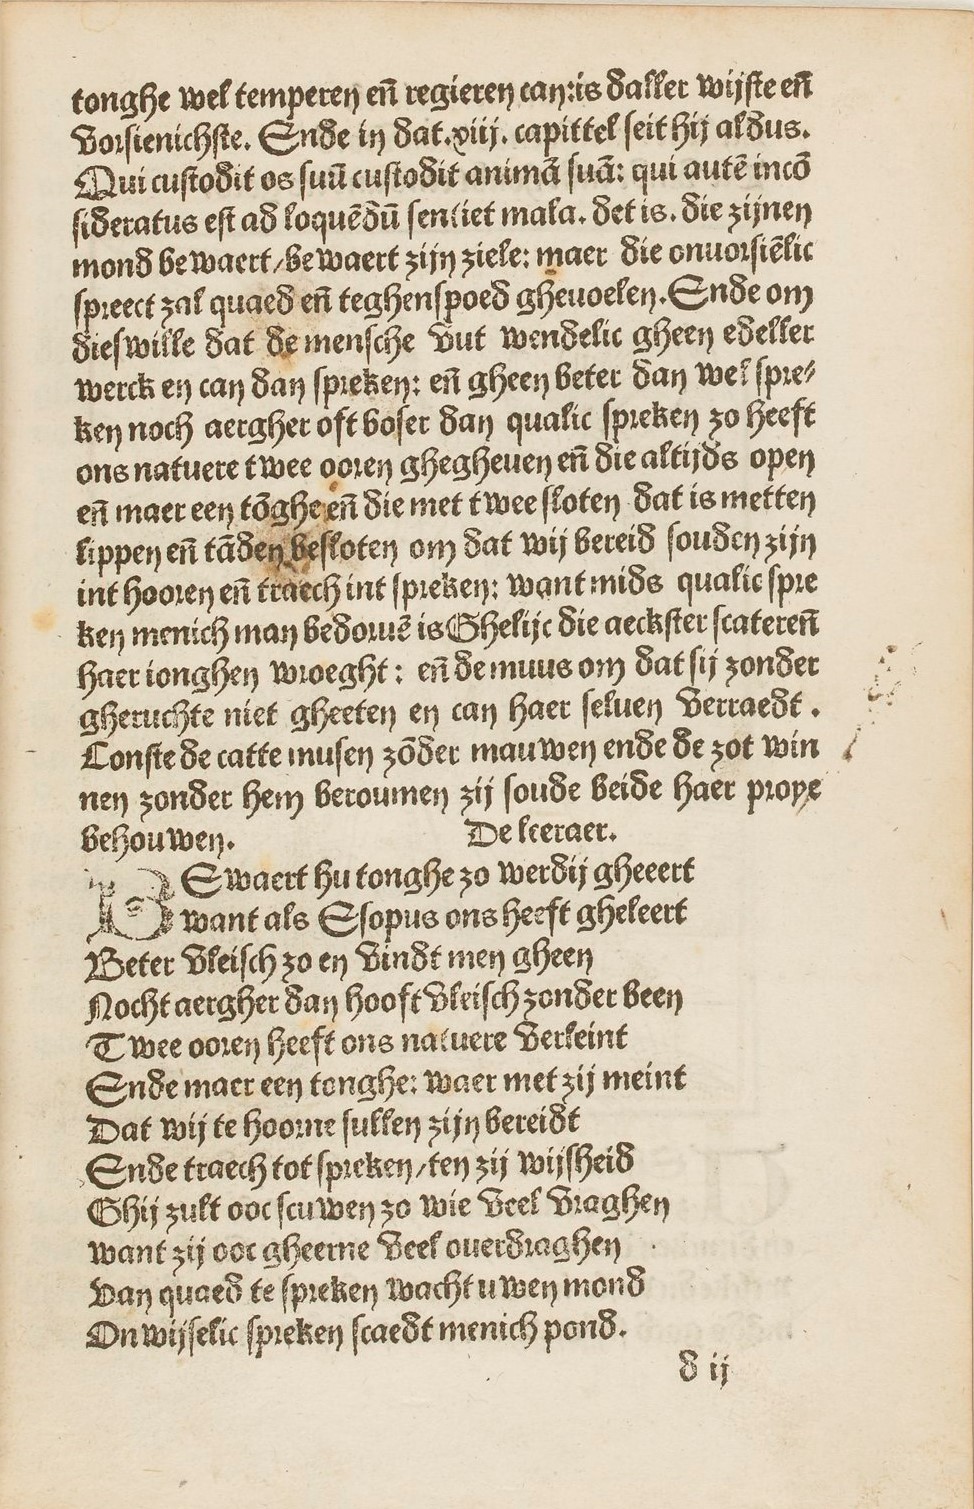 tonghe wel temperen en̄ regieren can:is daller wijste en̄
vorsienichste. Ende in dat.xiij. capittel seit hij aldus.
Qui custodit os suū custodit animā suā: qui autē incō
sideratus est ad loquēdū sentiet mala. det is. die zijnen
mond bewaert/bewaert zijn ziele: maer die onuorsiēlic
spreect zal quaed en̄ teghenspoed gheuoelen. Ende om
dieswille dat de mensche vut wendelic gheen edeller
werck en can dan spreken: en̄ gheen beter dan wel spre⸗
ken noch aergher oft boser dan qualic spreken zo heeft
ons natuere twee ooren ghegheuen en̄ die altijds open
en̄ maer een tōghe en̄ die met twee sloten dat is metten
lippen en̄ tāden besloten om dat wij bereid souden zijn
int hooren en̄ traech int spreken: want mids qualic spre
ken menich man bedoruē is Ghelijc die aeckster scateren̄
haer ionghen wroeght: en̄ de muus om dat sij zonder
gheruchte niet gheeten en can haer seluen verraedt.
Conste de catte musen zōder mauwen ende de zot win
nen zonder hem beroumen zij soude beide haer prope
behouwen. De leeraer.
B Ewaert hu tonghe zo werdij gheeert
want als Esopus ons heeft gheleert
Beter vleisch zo en vindt men gheen
Nocht aergher dan hooft vleisch zonder been
Twee ooren heeft ons natuere verleint
Ende maer een tonghe: waer met zij meint
Dat wij te hoorne sullen zijn bereidt
Ende traech tot spreken/ten zij wijsheid
Ghij zult ooc scuwen zo wie veel vraghen
want zij ooc gheerne veel ouerdraghen
Van quaed te spreken wacht uwen mond
Onwijselic spreken scaedt menich pond.
d ij